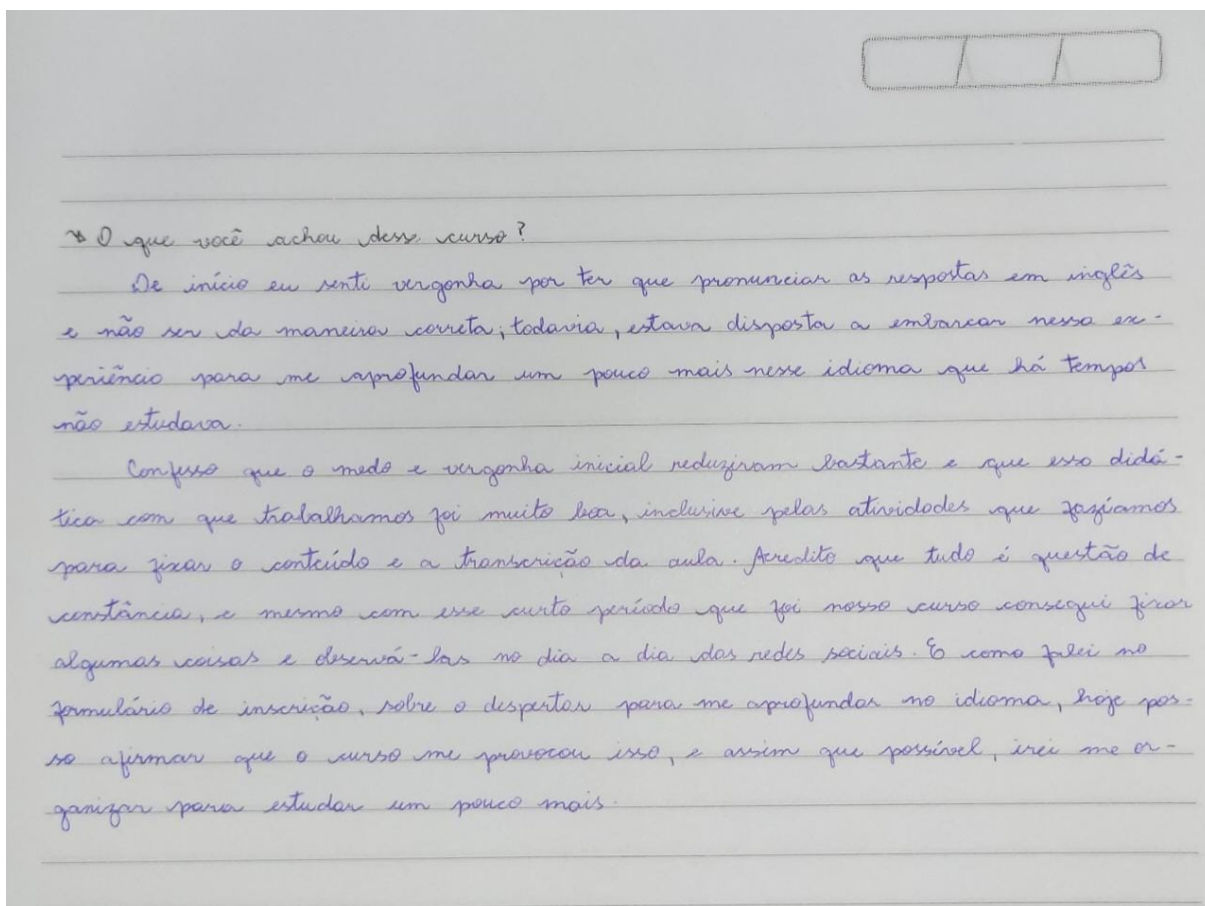 * O que você achou desse curso?
De início eu senti vergonha por ter que pronunciar as respostas em inglês
e não ser da maneira correta; todavia, estava disposta a embarcar nessa ex-
periência para me aprofundar um pouco mais nesse idioma que há tempos
não estudava.
Confesso que o medo e vergonha inicial reduziram bastante e que essa didá-
tica com que trabalhamos foi muito boa, inclusive pelas atividades que fazíamos
para fixar o conteúdo e a transcrição da aula. Acredito que tudo é questão de
constância, e mesmo com esse curto período que foi nosso curso consegui fixar
algumas coisas e observá-las no dia a dia das redes sociais. E como falei no
formulário de inscrição, sobre o despertar para me aprofundar no idioma, hoje pos-
so afirmar que o curso me provocou isso, e assim que possível, irei me or-
ganizar para estudar um pouco mais.